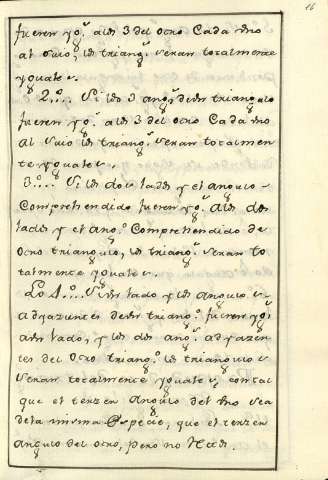 16
fueren yg.s a los 3 del otro Cada uno
al suio, los triang.s seran totalmente
yguales.
2.o Si los 3 ang.s de un triangulo
fueren yg.s a los 3 del otro Cada uno
al suio los triang.s seran totalmen
te yguales.
3.o Si los dos lados y el angulo
Comprehendido fueren yg.s a los dos
lados y el ang.o Comprehendido de
otro triangulo, los triang.s seran to
talmente yguales.
Lo 4.o Si un lado y los angulos
adyazentes de un triang.o fueren yg.s
a un lado, y los dos ang.s adyazen
tes del otro triang.o los triangulos
seran totalmente yguales, con tal
que el terzen angulo del uno sea
de la misma Especie, que el terzen
angulo del otro, pero no